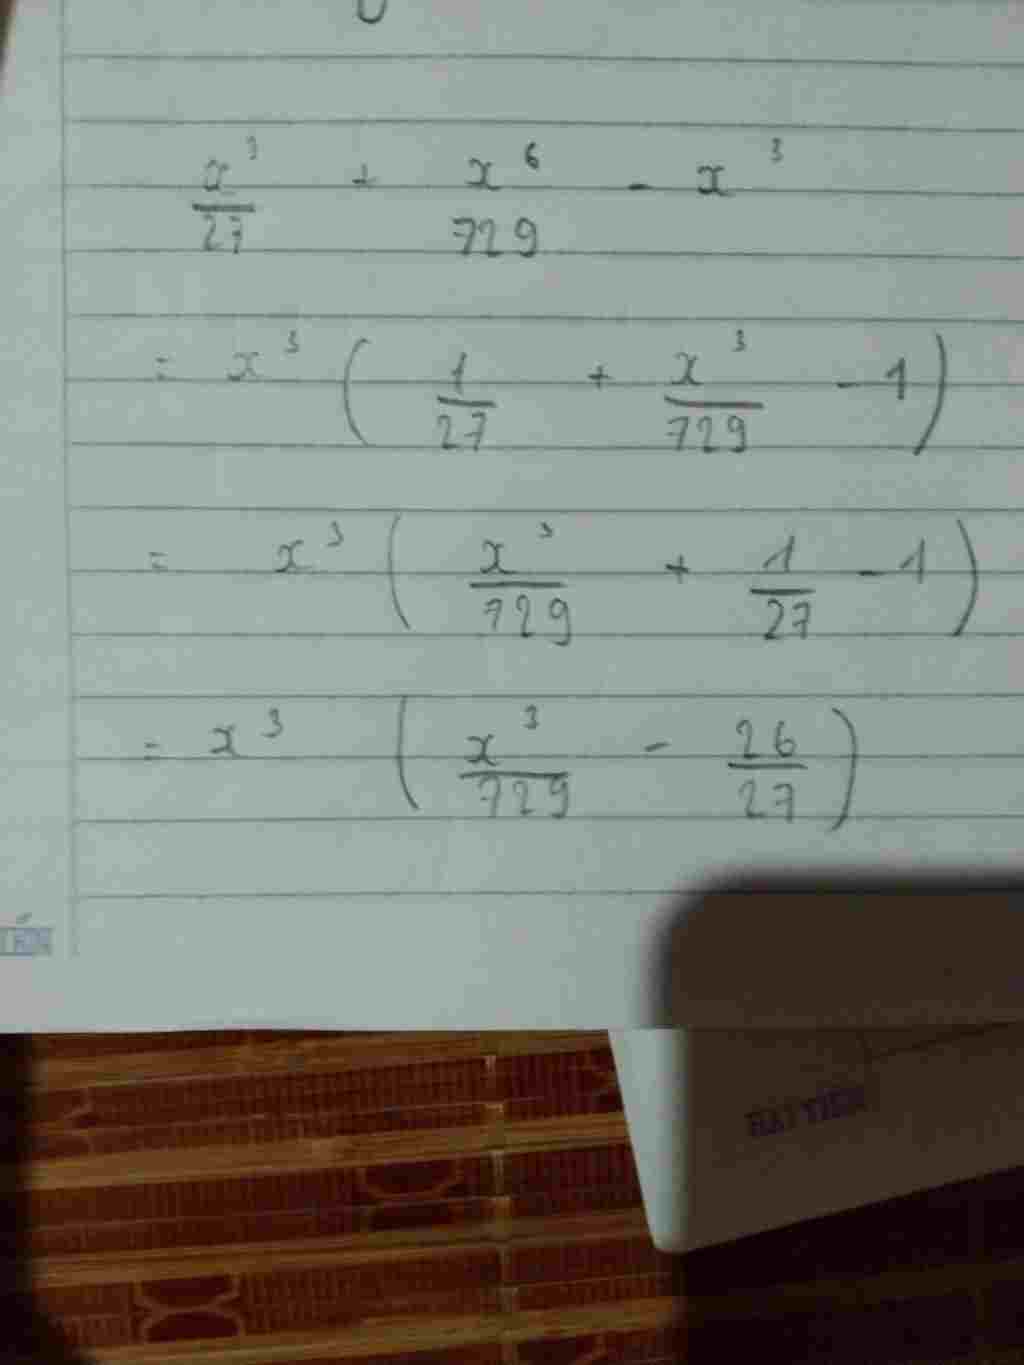 x³/27 + x⁶/729 - x³
= x³ ( 1/27 + x³/729 - 1 )
= x³ ( x³/729 + 1/27 - 1 )
= x³ ( x³/729 - 26/27 )
HẢI TIẾN